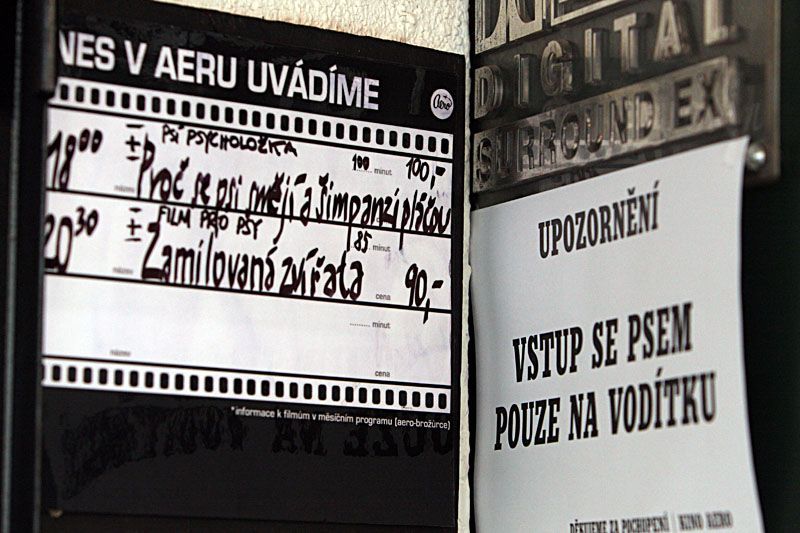 NES V AERU UVÁDÍME
Aero
18 00 ± PSI PSYCHOLOŽKA 100 minut 100,-
Proč se psi smějí a šimpanzi pláčou
název
20 30 ± FILM PRO PSY 85 minut
Zamilovaná zvířata cena 90,-
název
minut
název
cena
*informace k filmům v měsíčním programu (aero-brožurce)
DIGITAL
SURROUND EX
UPOZORNĚNÍ
VSTUP SE PSEM
POUZE NA VODÍTKU
DĚKUJEME ZA POCHOPENÍ | KINO AERO